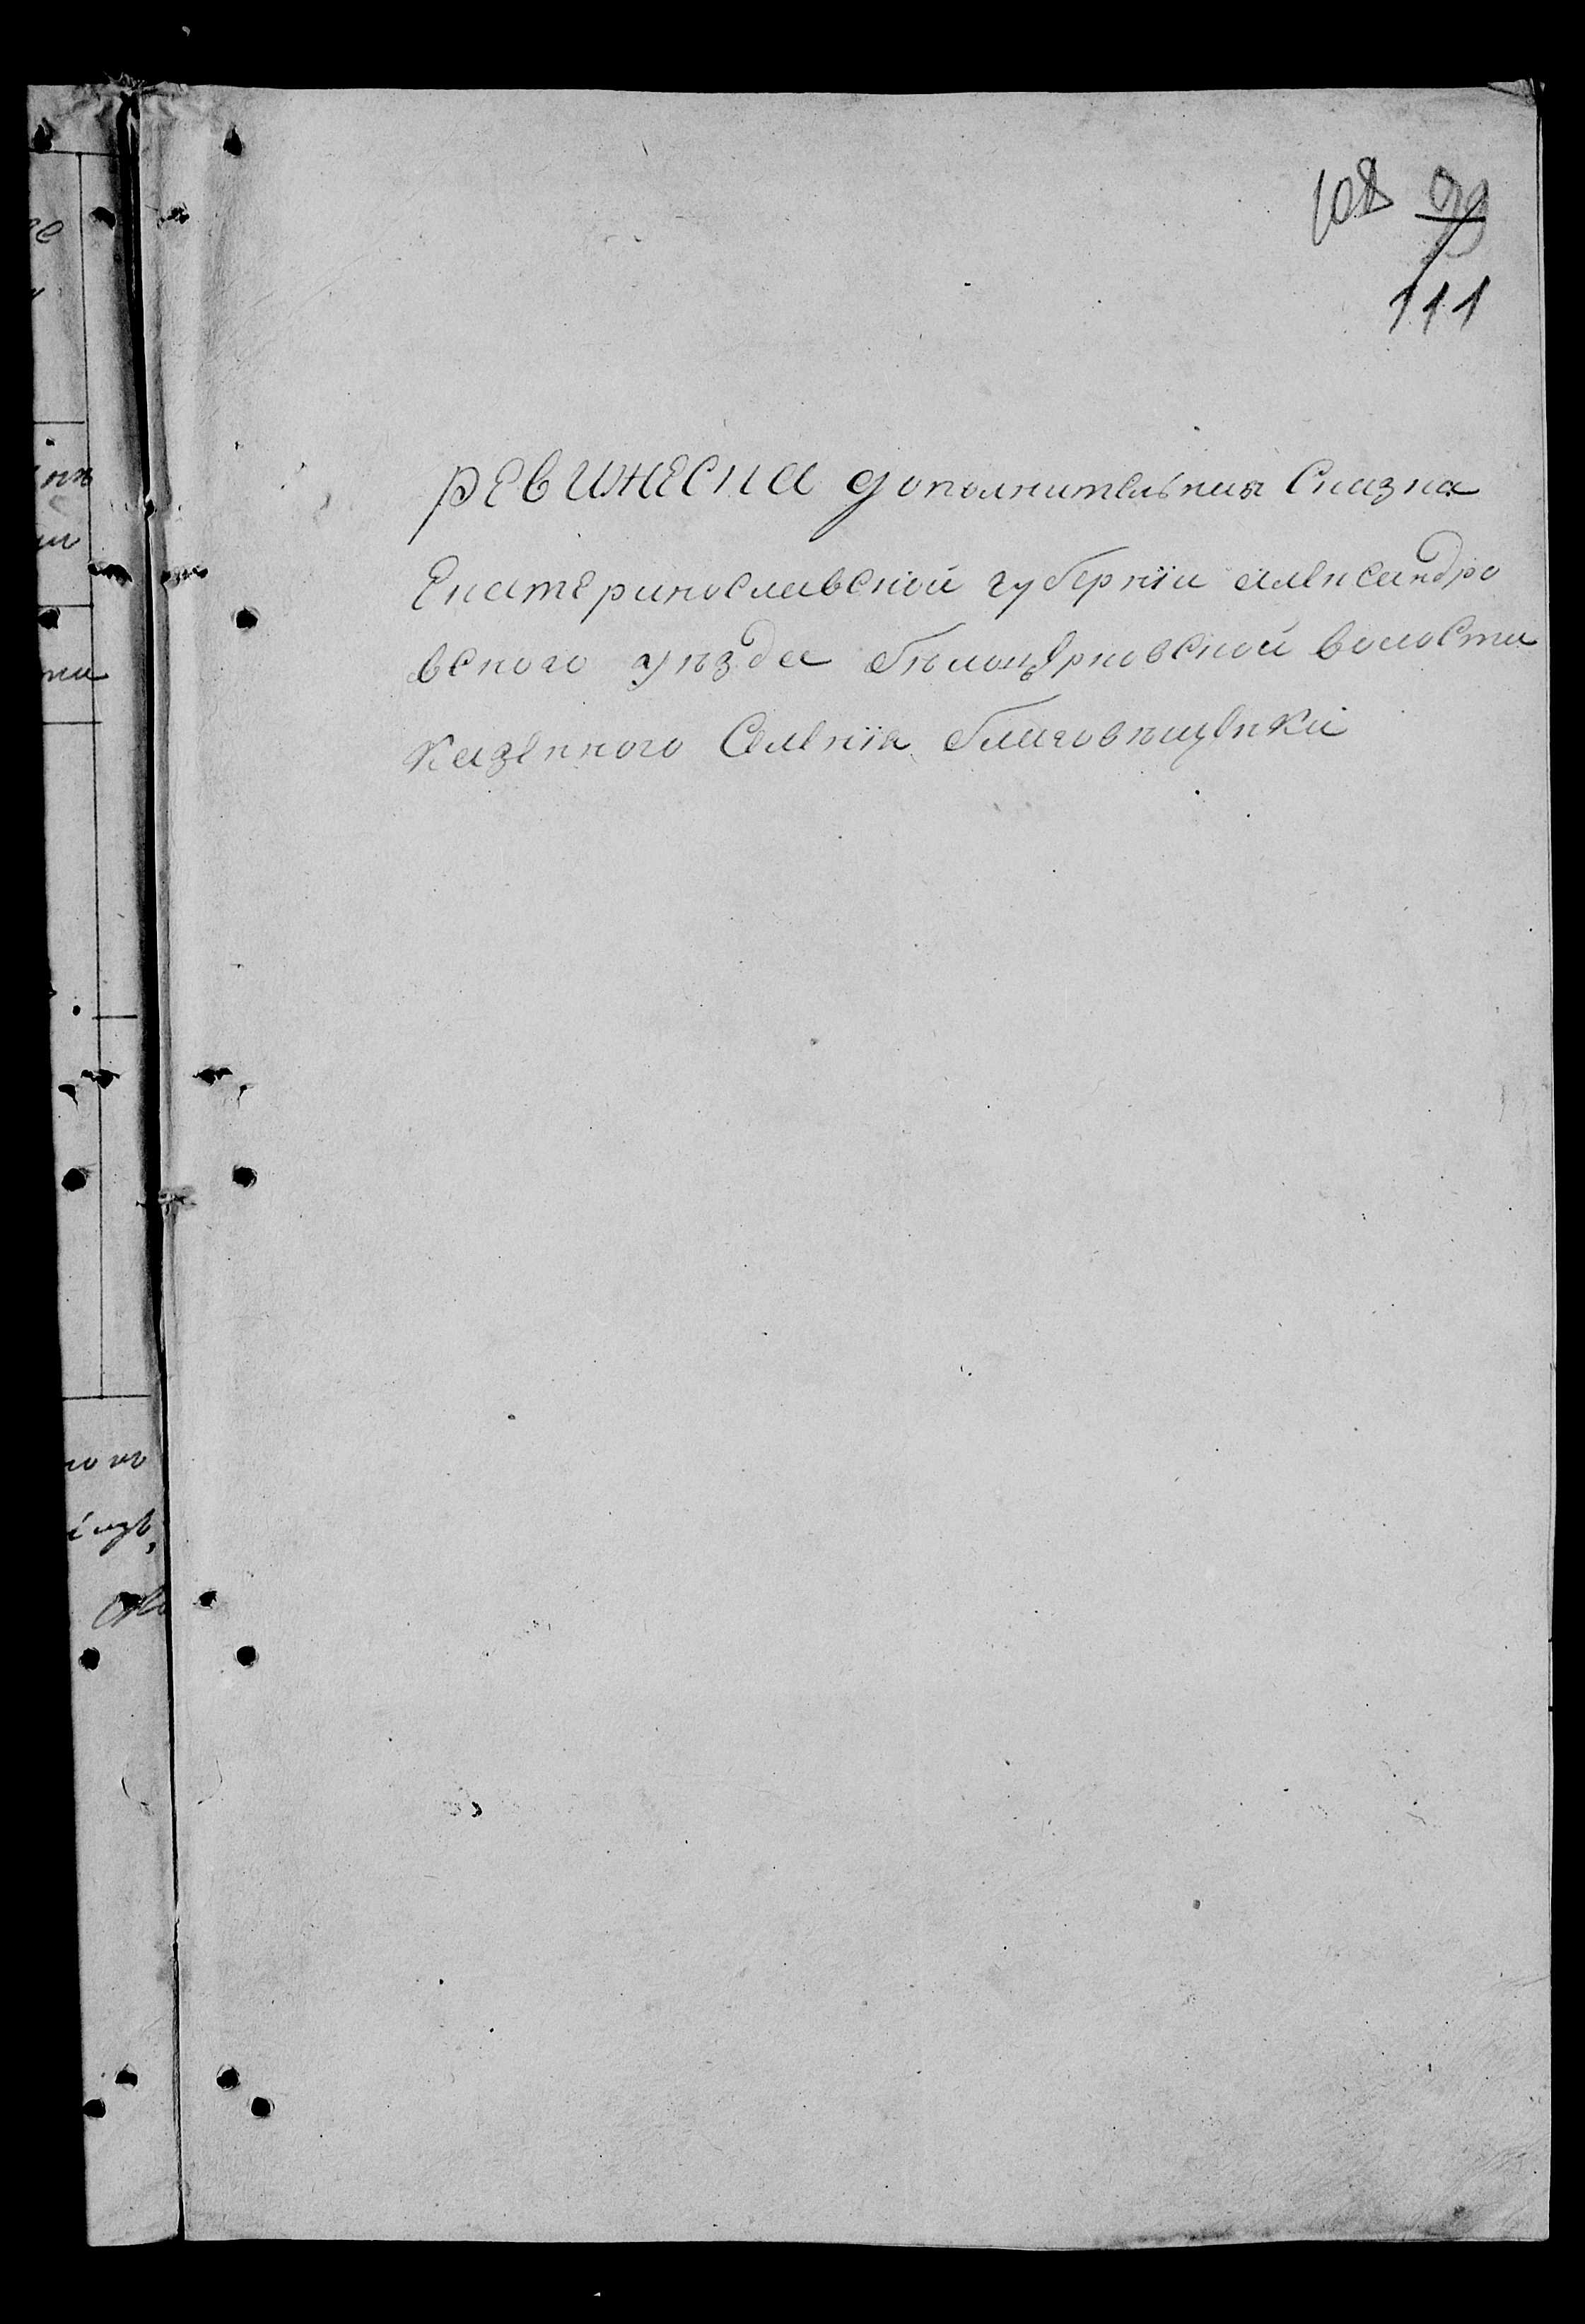 108 99
111
РЕВИЖЕСКА дополнительная Сказка
Екатеринославской губернiи александро
вского уѣзда бѣлоцерковской волости
Казенного Селенiя благовѣщенки